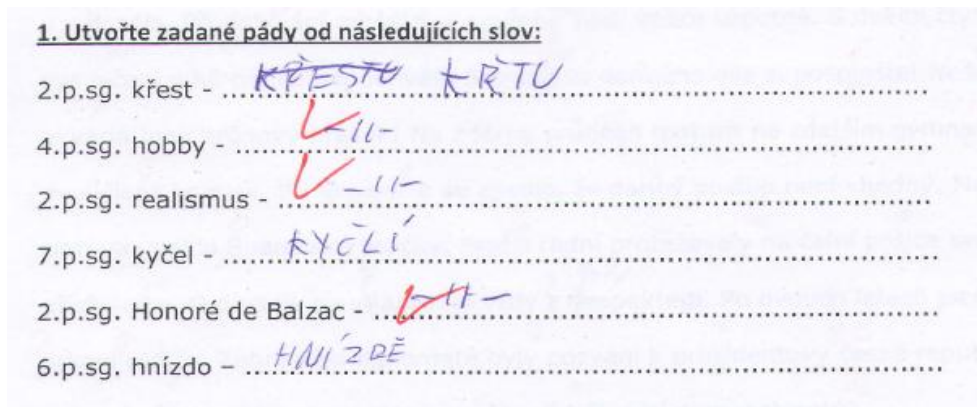 1. Utvořte zadané pády od následujících slov:
2.p.sg. křest - KŘESTU KŘTU
4.p.sg. hobby - -11-
2.p.sg. realismus - -11-
7.p.sg. kyčel - KYČLÍ
2.p.sg. Honoré de Balzac - -11-
6.p.sg. hnízdo – HNÍZDĚ